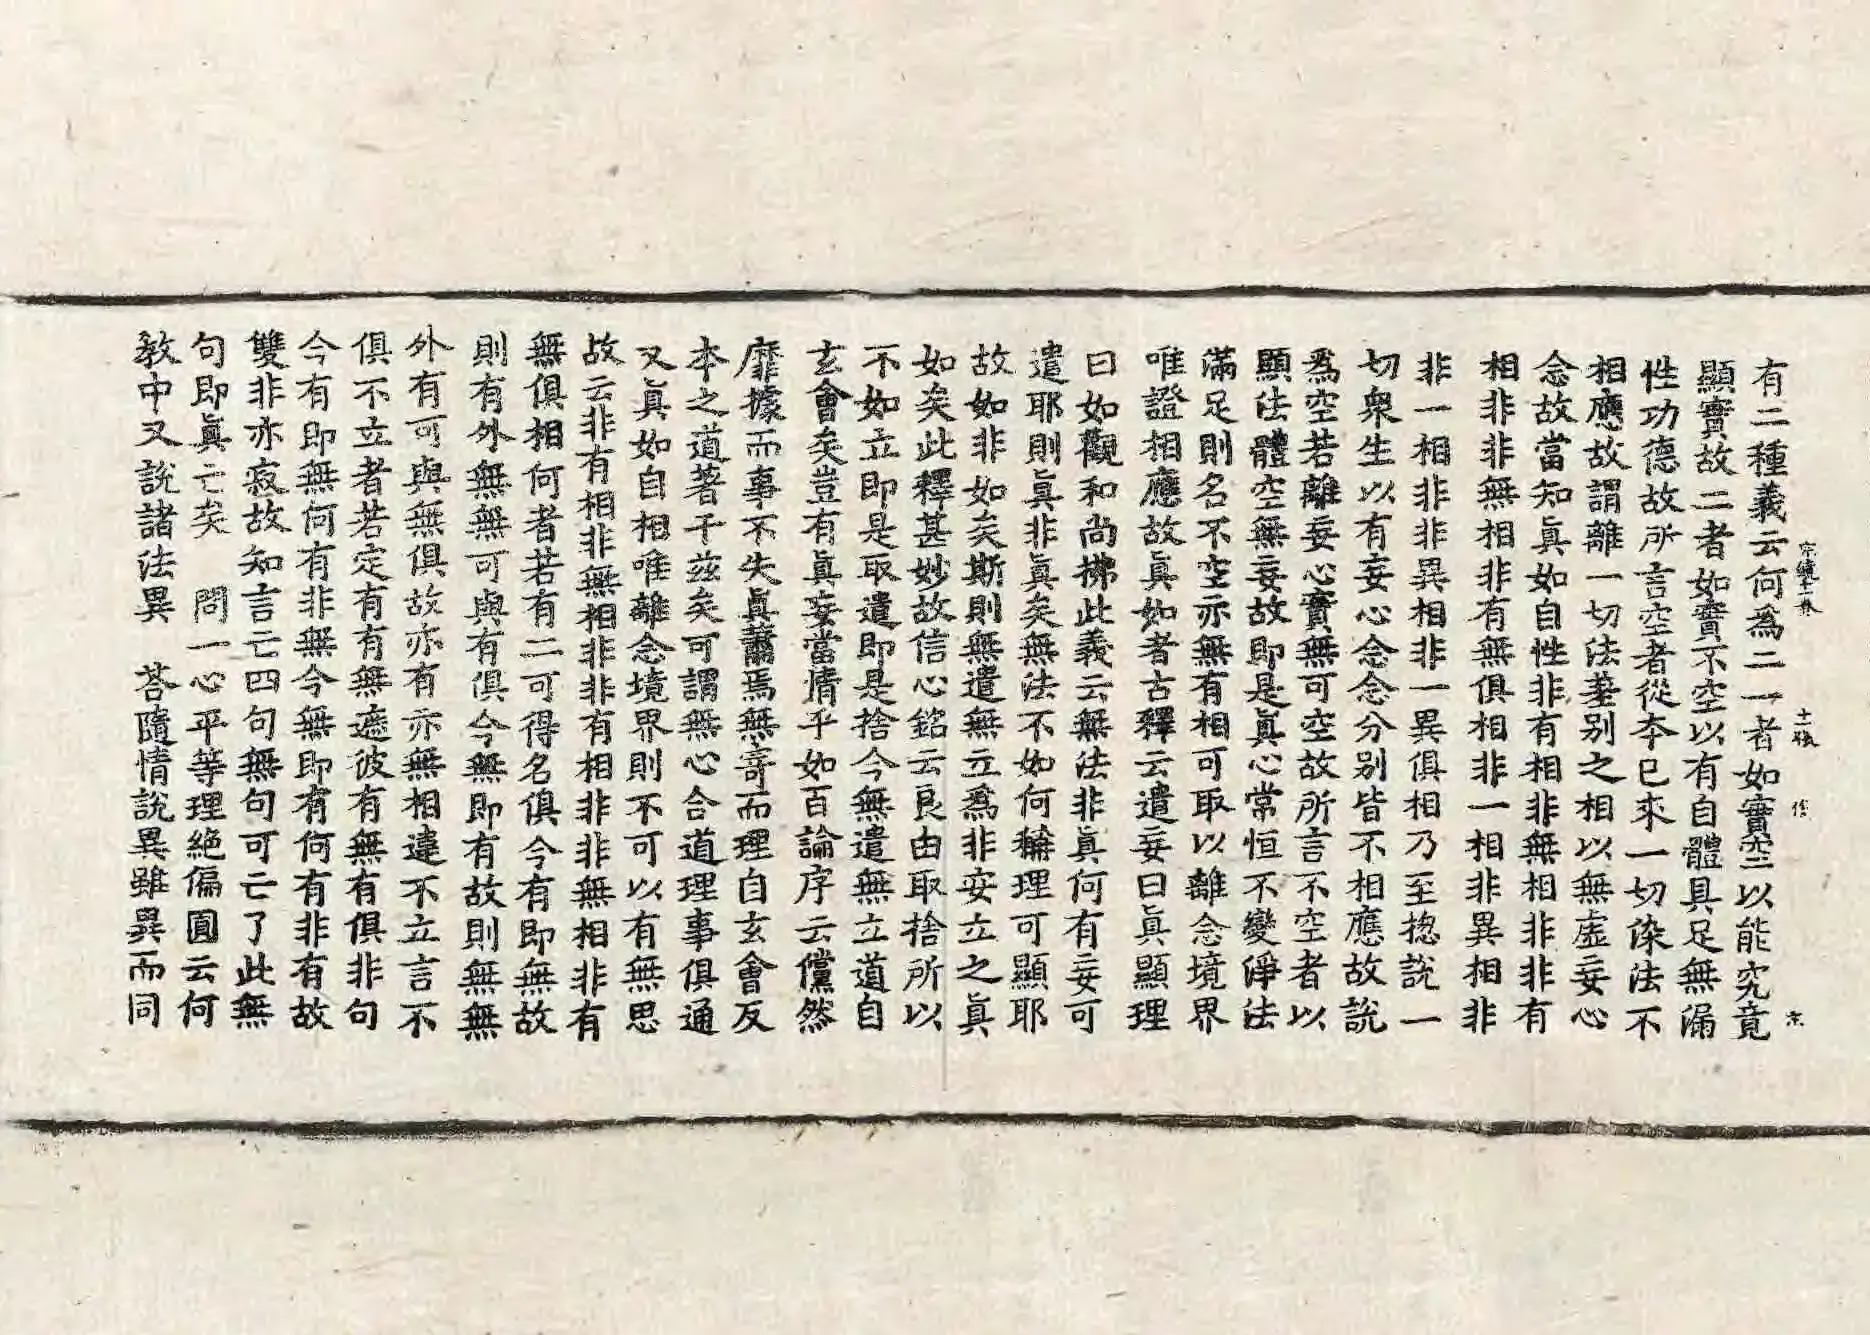 有二種義云何爲二一者如實空以能究竟
顯實故二者如實不空以有自體具足無漏
性功德故所言空者從本已來一切染法不
相應故謂離一切法差別之相以無虛妄心
念故當知眞如自性非有相非無相非非有
相非非無相非有無俱相非一相非異相非
非一相非非異相非一異俱相乃至揔說一
切衆生以有妄心念念分別皆不相應故說
爲空若離妄心實無可空故所言不空者以
顯法體空無妄故即是眞心常恒不變淨法
滿足則名不空亦無有相可取以離念境界
唯證相應故眞如者古釋云遣妄曰眞顯理
曰如觀和尚拂此義云無法非眞何有妄可
遣耶則眞非眞矣無法不如何稱理可顯耶
故如非如矣斯則無遣無立爲非安立之眞
如矣此釋甚妙故信心銘云良由取捨所以
不如立即是取遣即是捨今無遣無立道自
玄會矣豈有眞妄當情乎如百論序云儻然
靡據而事不失眞蕭焉無寄而理自玄會反
本之道著于茲矣可謂無心合道理事俱通
又眞如自相唯離念境界則不可以有無思
故云非有相非無相非非有相非非無相非有
無俱相何者若有二可得名俱今有即無故
則有外無無可與有俱今無即有故則無無
外有可與無俱故亦有亦無相違不立言不
俱不立者若定有有無遮彼有無有俱非句
今有即無何有非無今無即有何有非有故
雙非亦寂故知言亡四句無句可亡了此無
句即眞亡矣　問一心平等理絶偏圓云何
敎中又說諸法異　荅隨情說異雖異而同